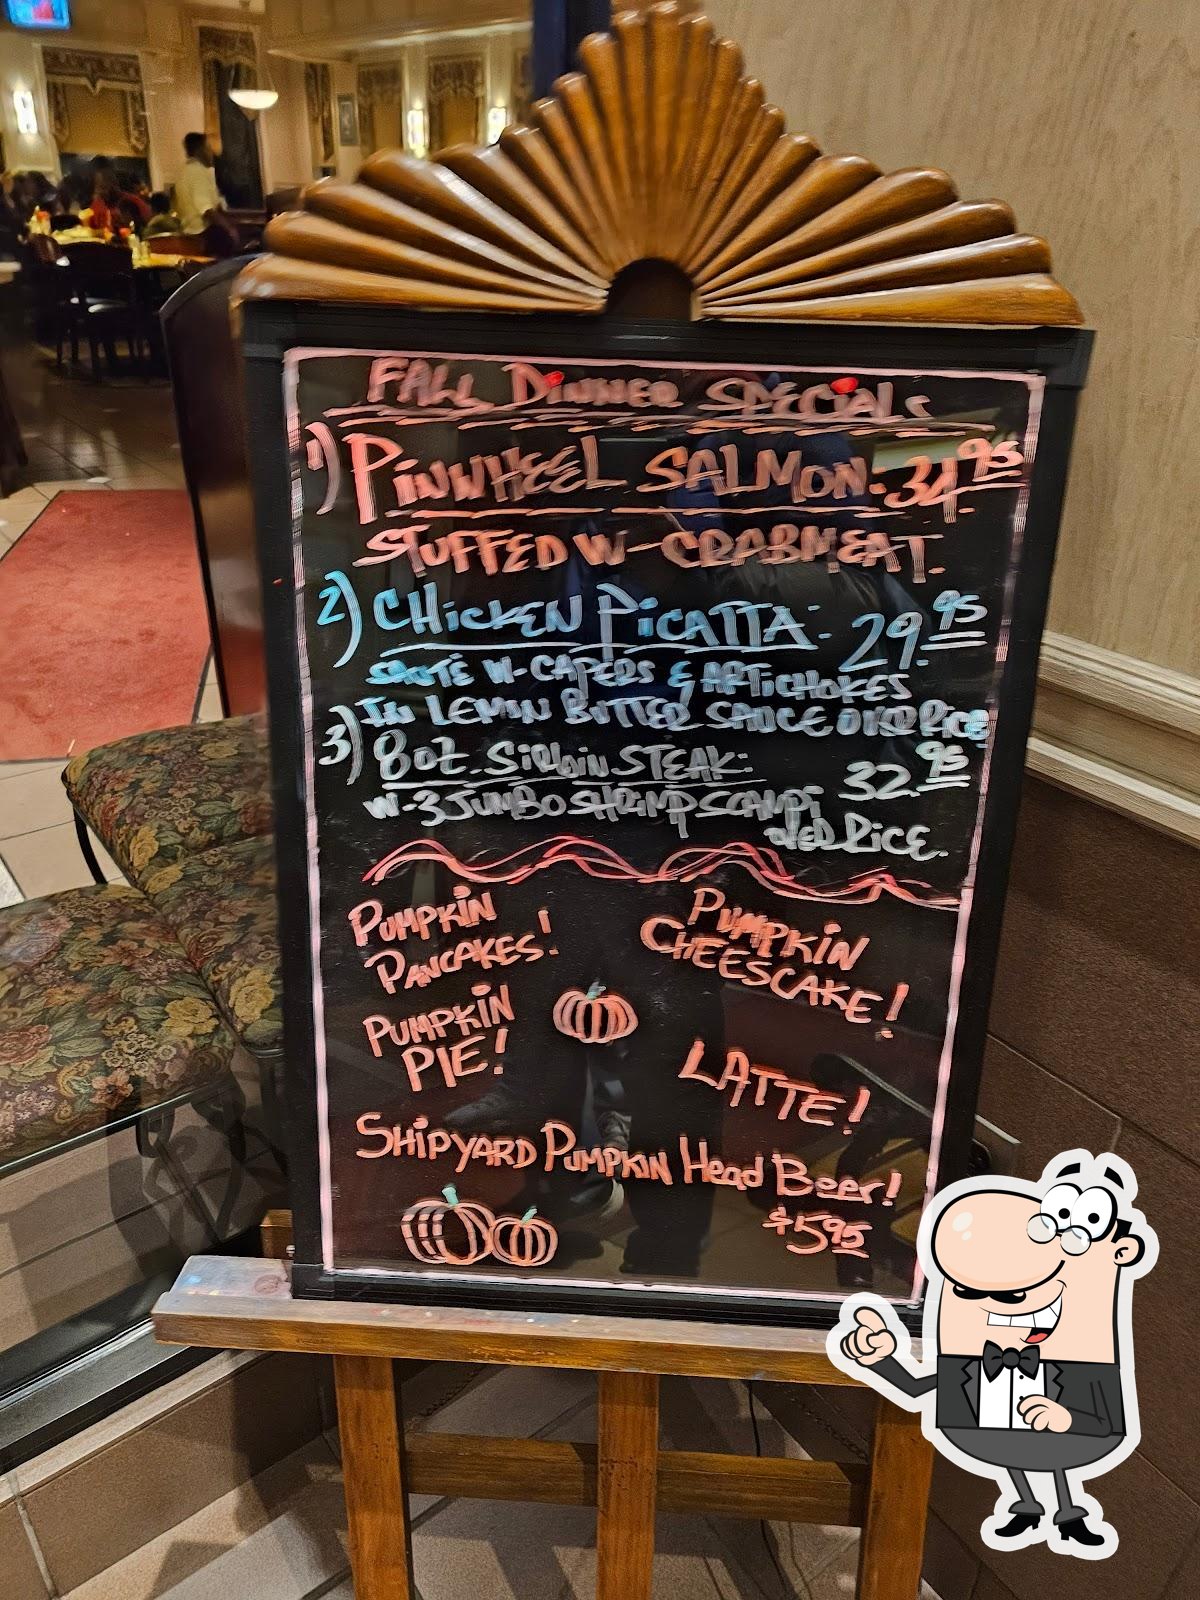 FALL DINNER SPECIALS
1) PINWHEEL SALMON: 34.95
STUFFED W- CRABMEAT.
2) CHICKEN PICATTA: 29.95
SAUTE W- CAPERS & ARTICHOKES
IN LEMON BUTTER SAUCE OVER RICE
3) 8oz. SIRLOIN STEAK: 32.95
W- 3 JUMBO SHRIMP SCAMPI
OVER RICE.
PUMPKIN
PANCAKES!
PUMPKIN
CHEESCAKE!
PUMPKIN
PIE!
LATTE!
SHIPYARD PUMPKIN Head Beer!
$5.95